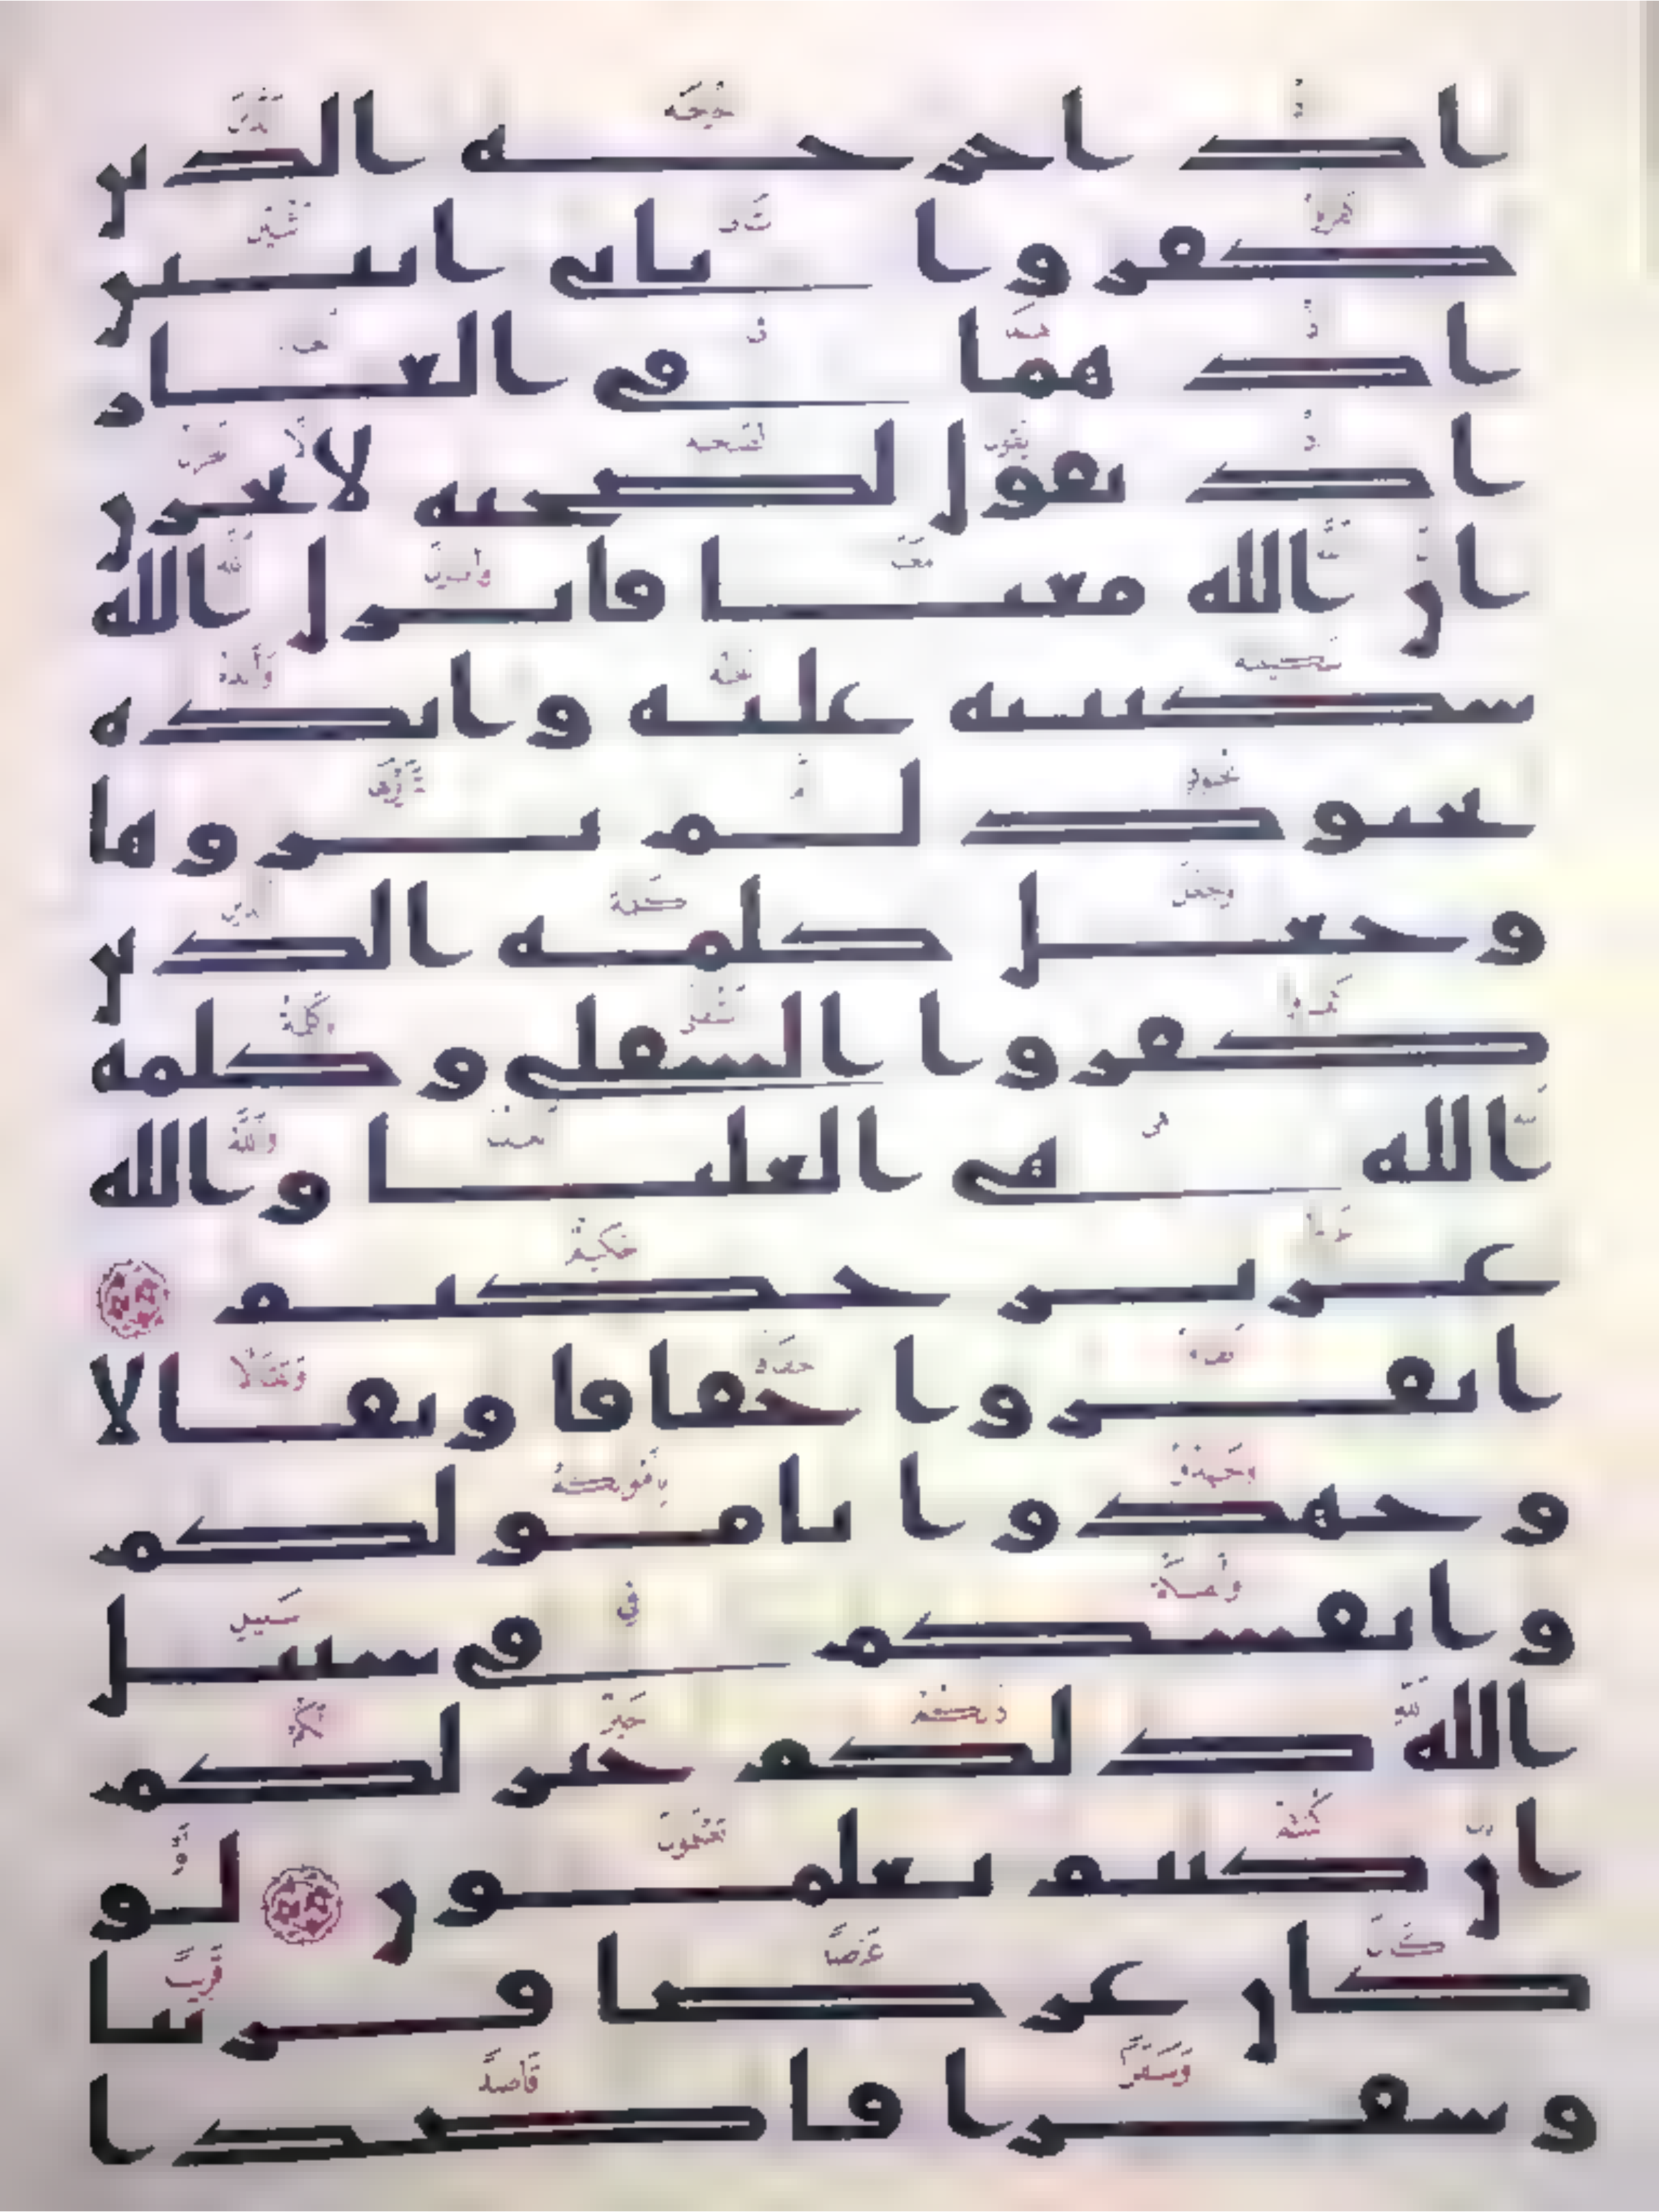 اذ اخرجه الذين
كفروا ثاني اثنين
اذ هما في الغار
اذ يقول لصحبه لا تحزن
ان الله معنا فانزل الله
سكينته عليه وايده
بجنود لم تروها
وجعل كلمة الذين
كفروا السفلى وكلمة
الله هي العليا والله
عزيز حكيم
انفروا خفافا وثقالا
وجهدوا بامولكم
وانفسكم في سبيل
الله ذلكم خير لكم
ان كنتم تعلمون لو
كان عرضا قريبا
وسفرا قاصدا